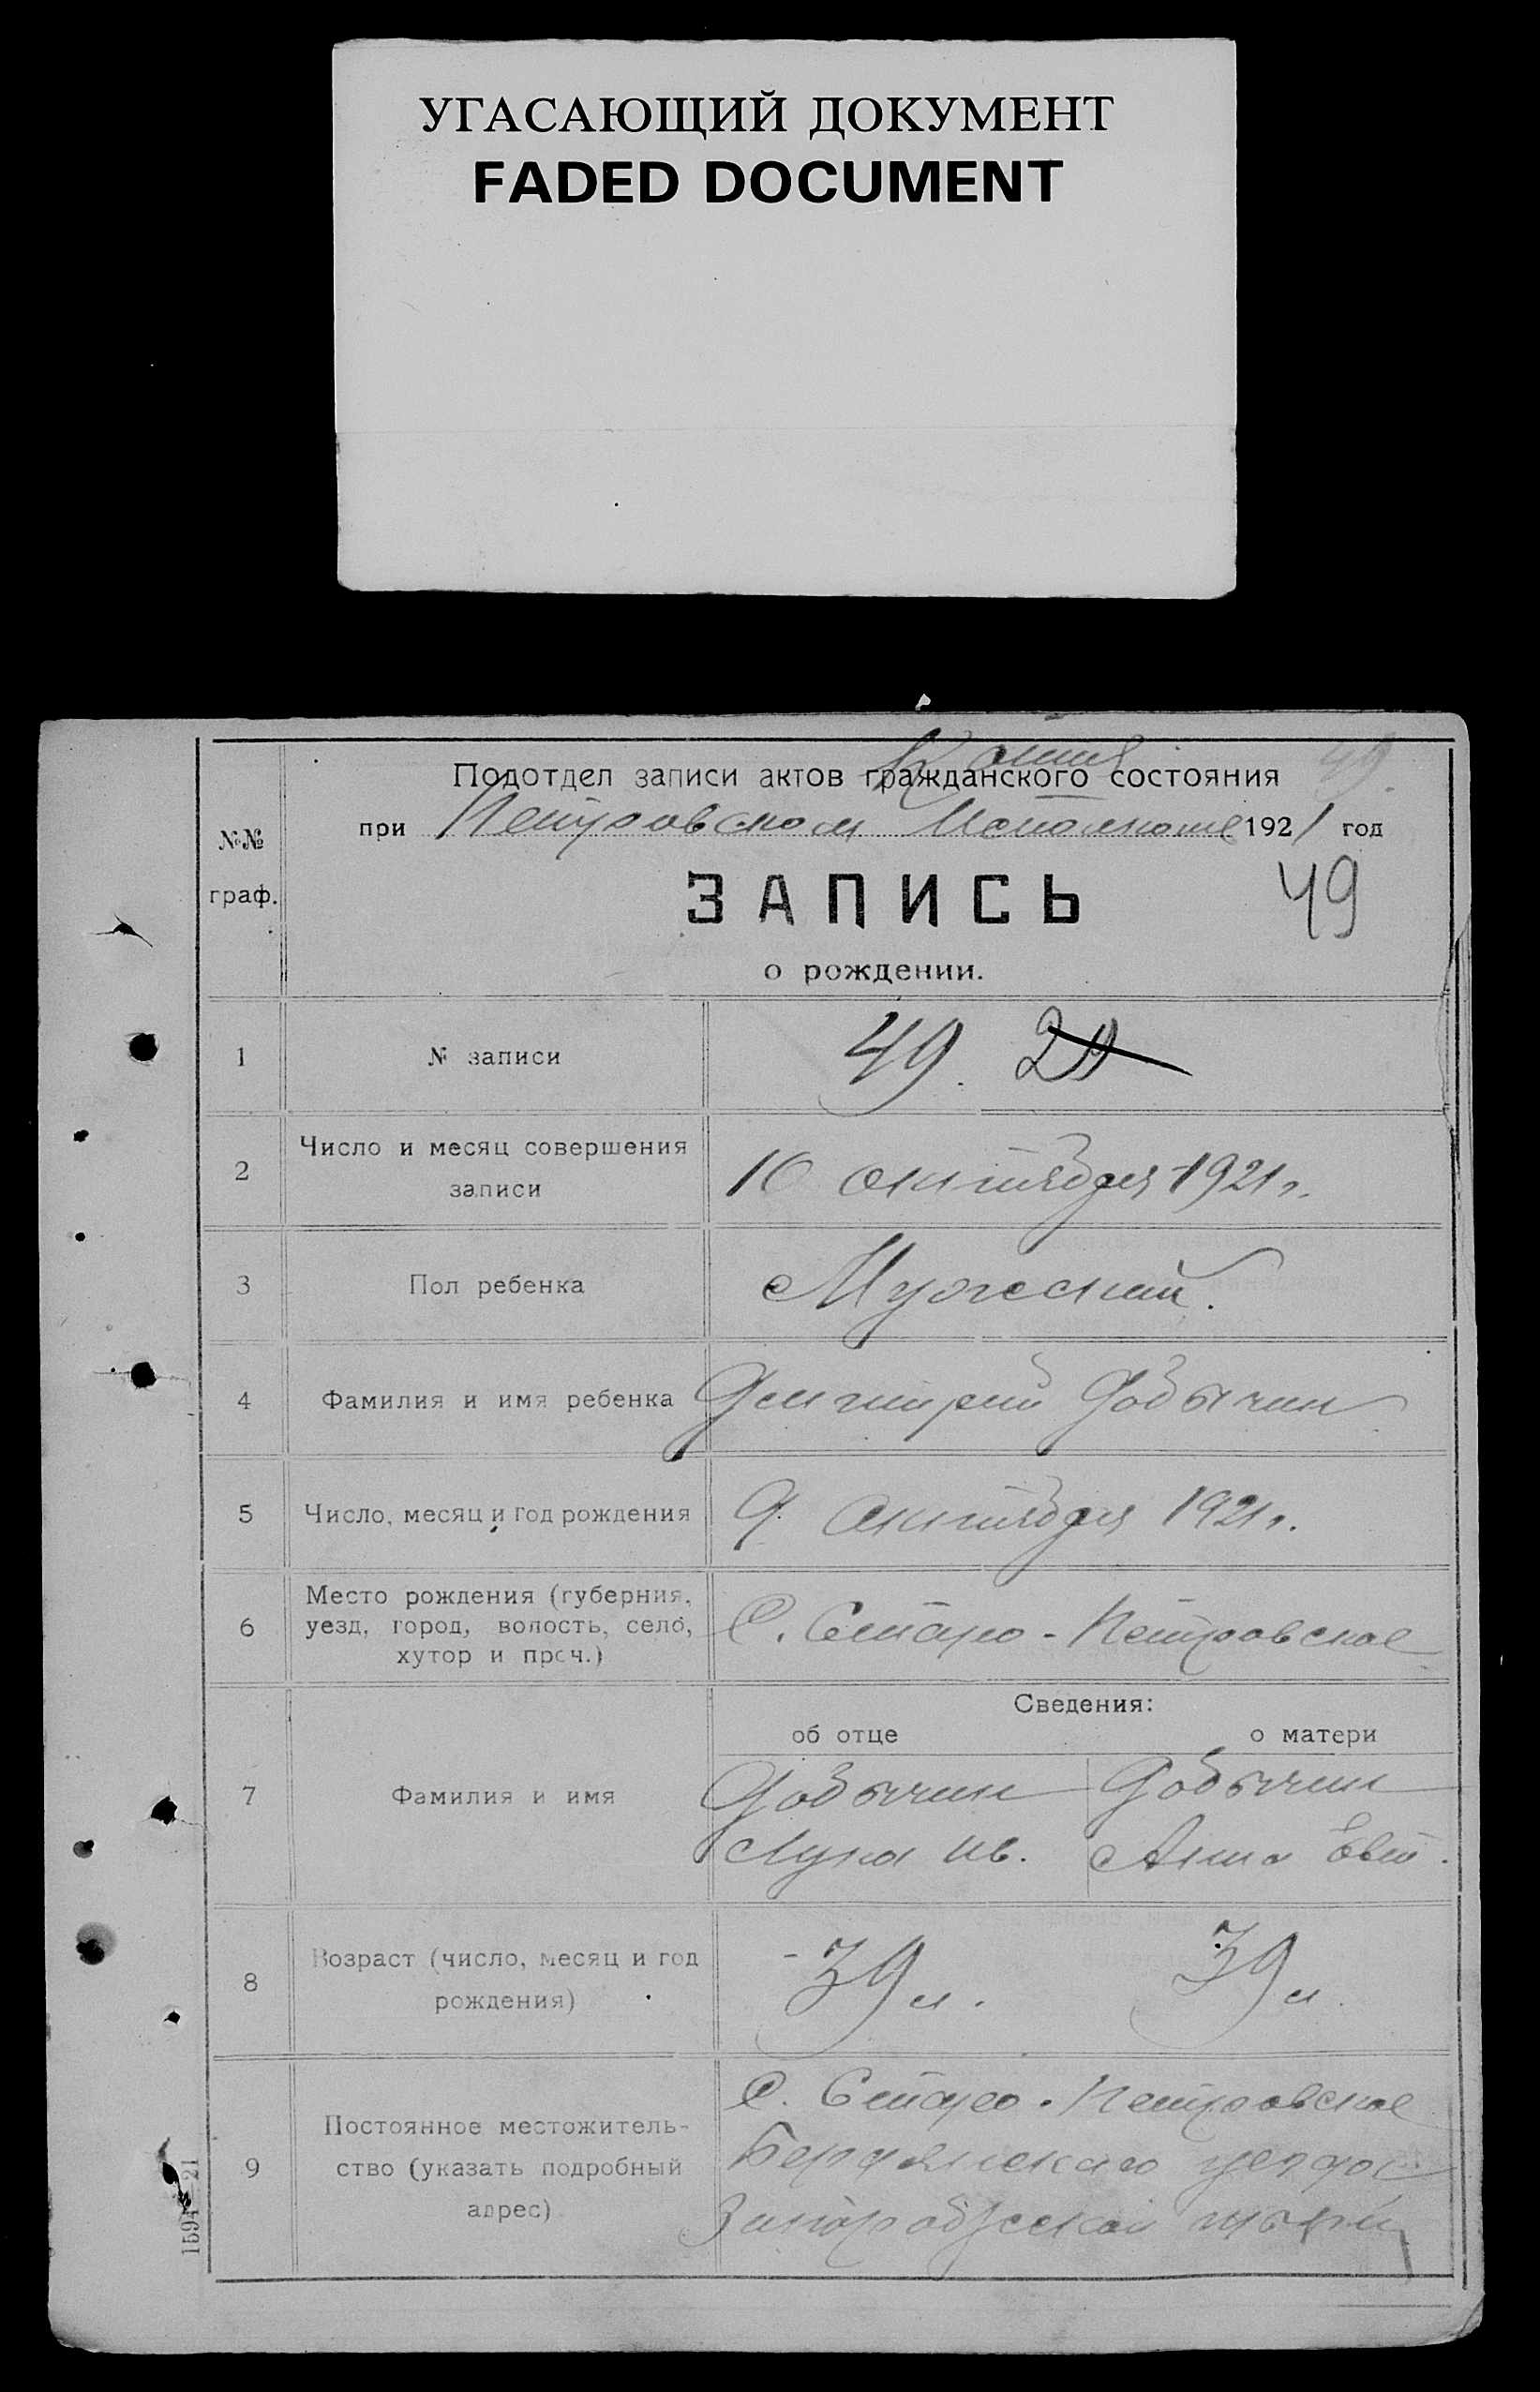 УГАСАЮЩИЙ ДОКУМЕНТ
FADED DOCUMENT
Копия
49.
Подотдел записи актов гражданского состояния
при Петровском Исполкоме 1921 год
№№
граф.
ЗАПИСЬ
49
о рождении.
1 № записи 49. 29
2 Число и месяц совершения
записи
10 октября 1921 г.
3 Пол ребенка Мужеский.
4 Фамилия и имя ребенка Дмитрий Добычин
5 Число, месяц и год рождения 9 октября 1921 г.
6 Место рождения (губерния,
уезд, город, волость, село,
хутор и проч.)
С. Старо-Петровское
Сведения:
об отце о матери
7 Фамилия и имя
Добычин Добычин
Лука Ив. Анна Евт.
8 Возраст (число, месяц и год
рождения)
39 л. 39 л.
9 Постоянное местожитель-
ство (указать подробный
адрес)
С. Старо-Петровское
Бердянскаго уезда
Запорожской губернии
1594—21